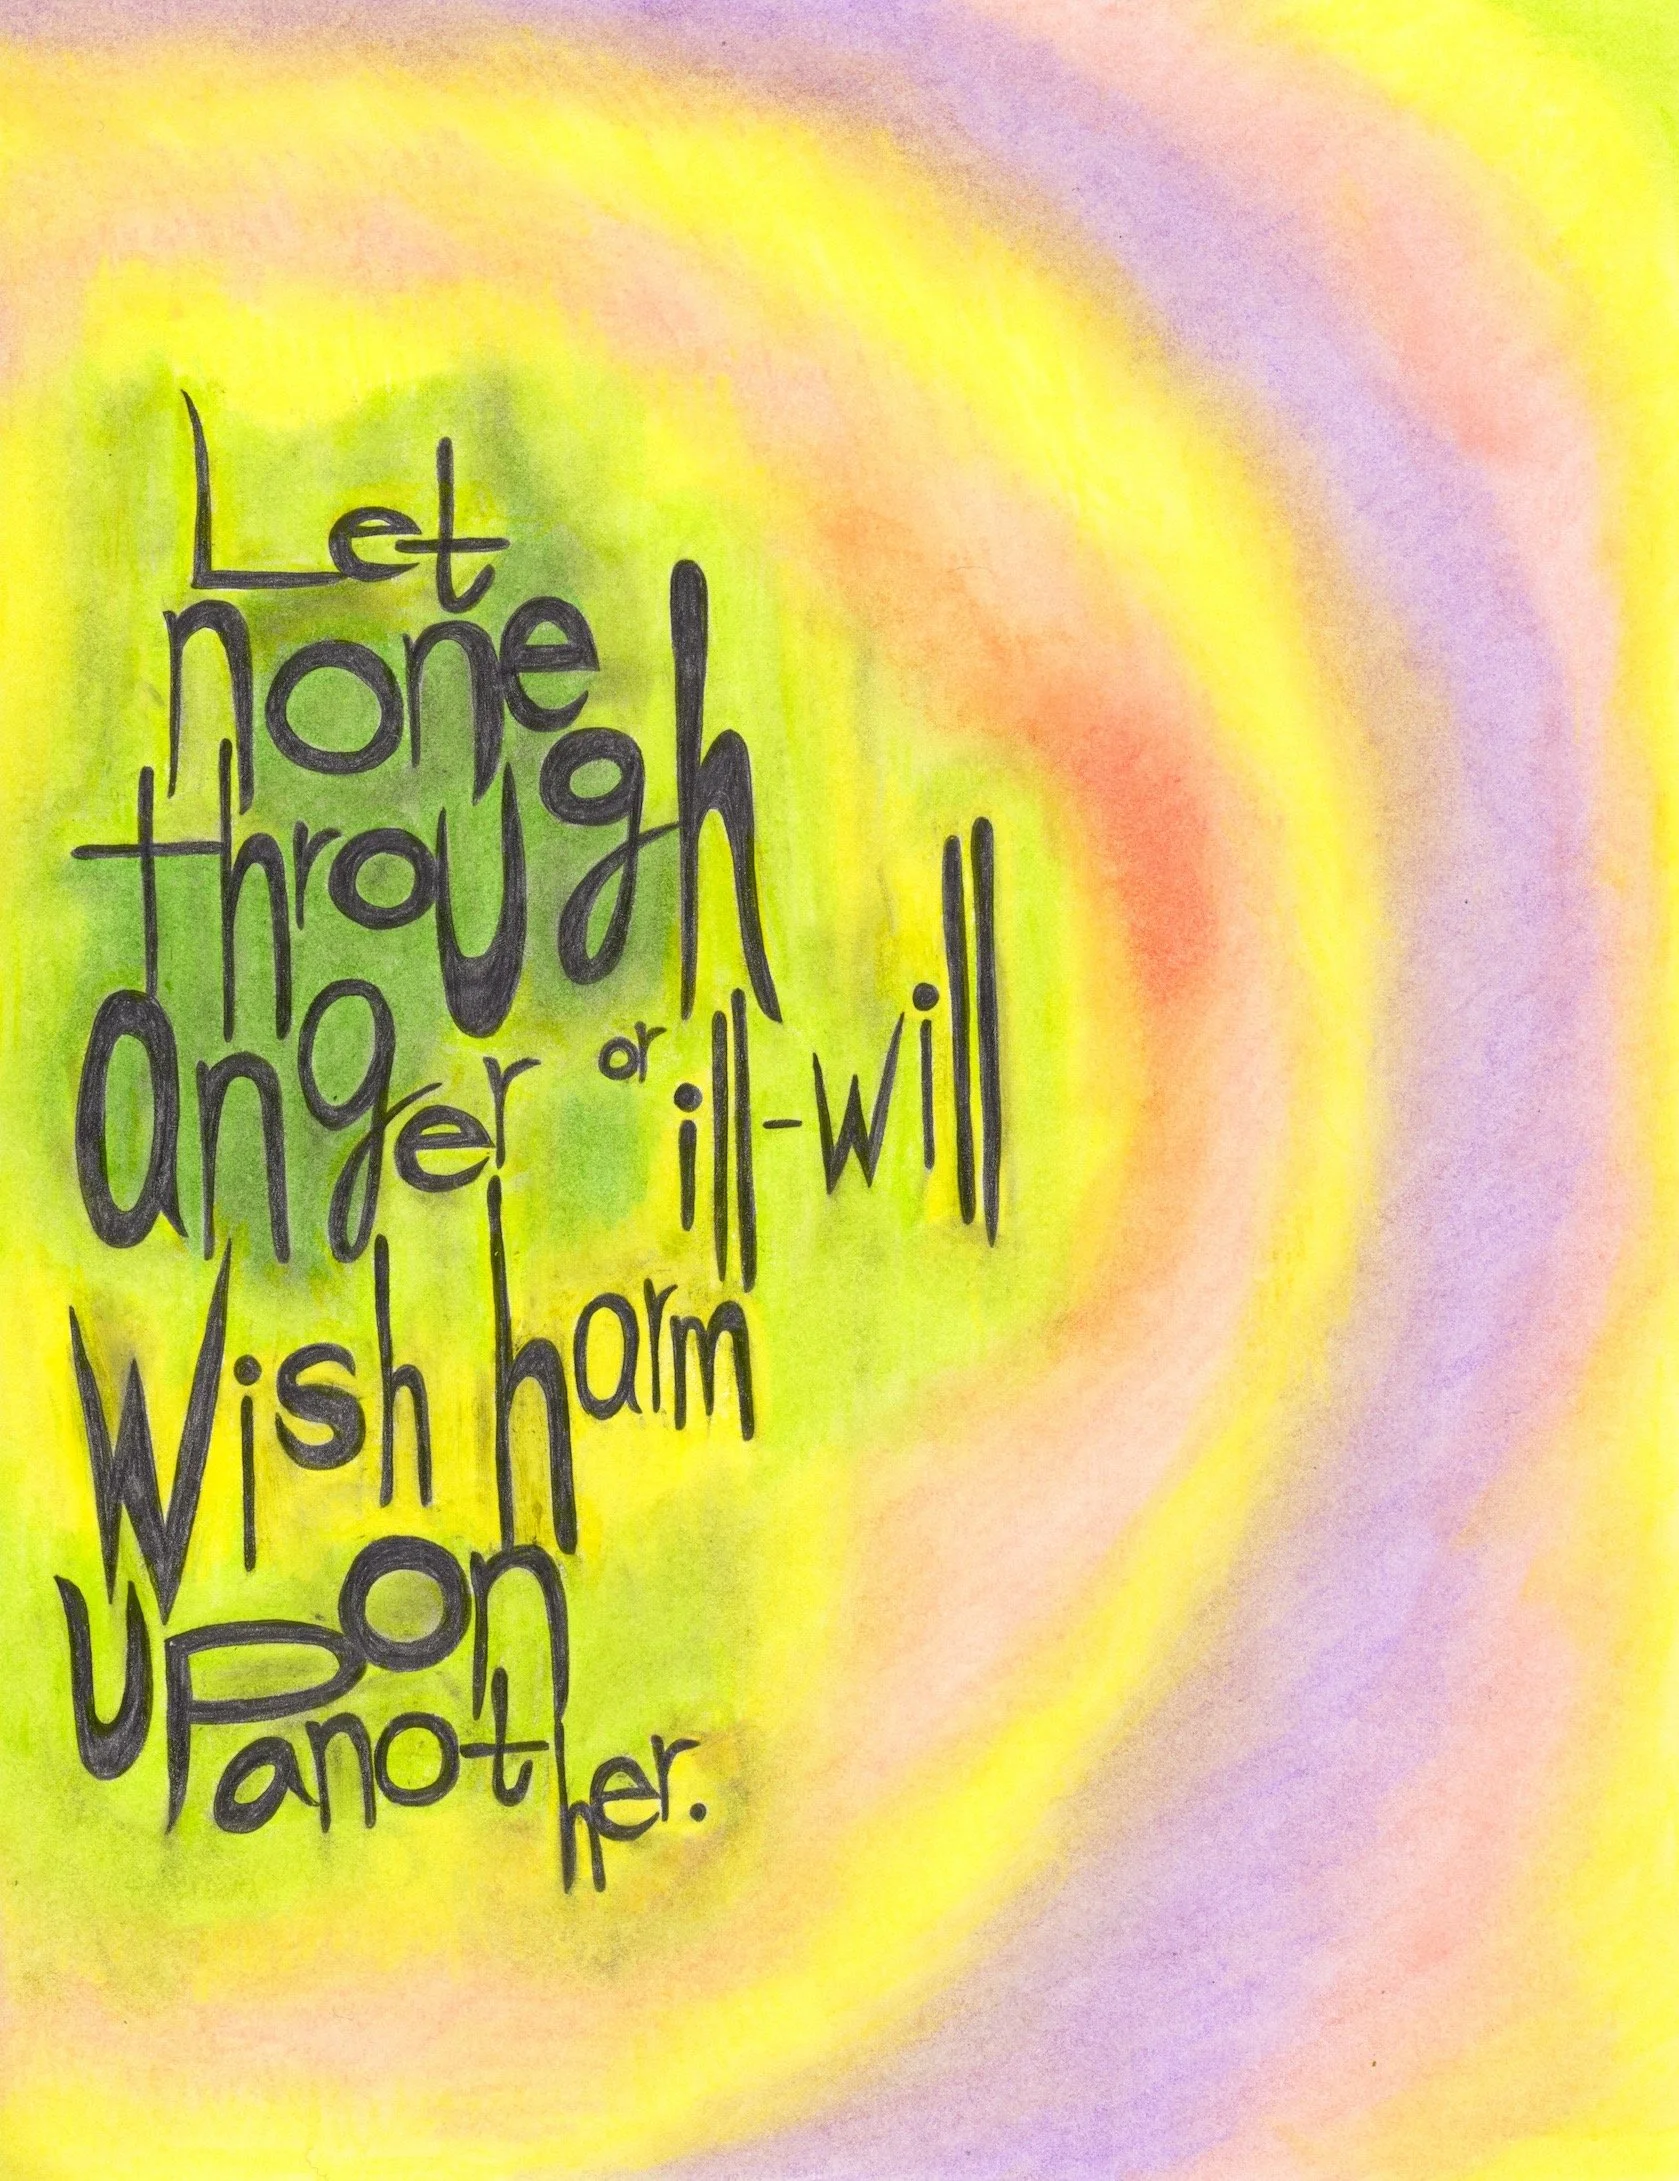 Let
none
through
anger or ill-will
Wish harm
upon
another.